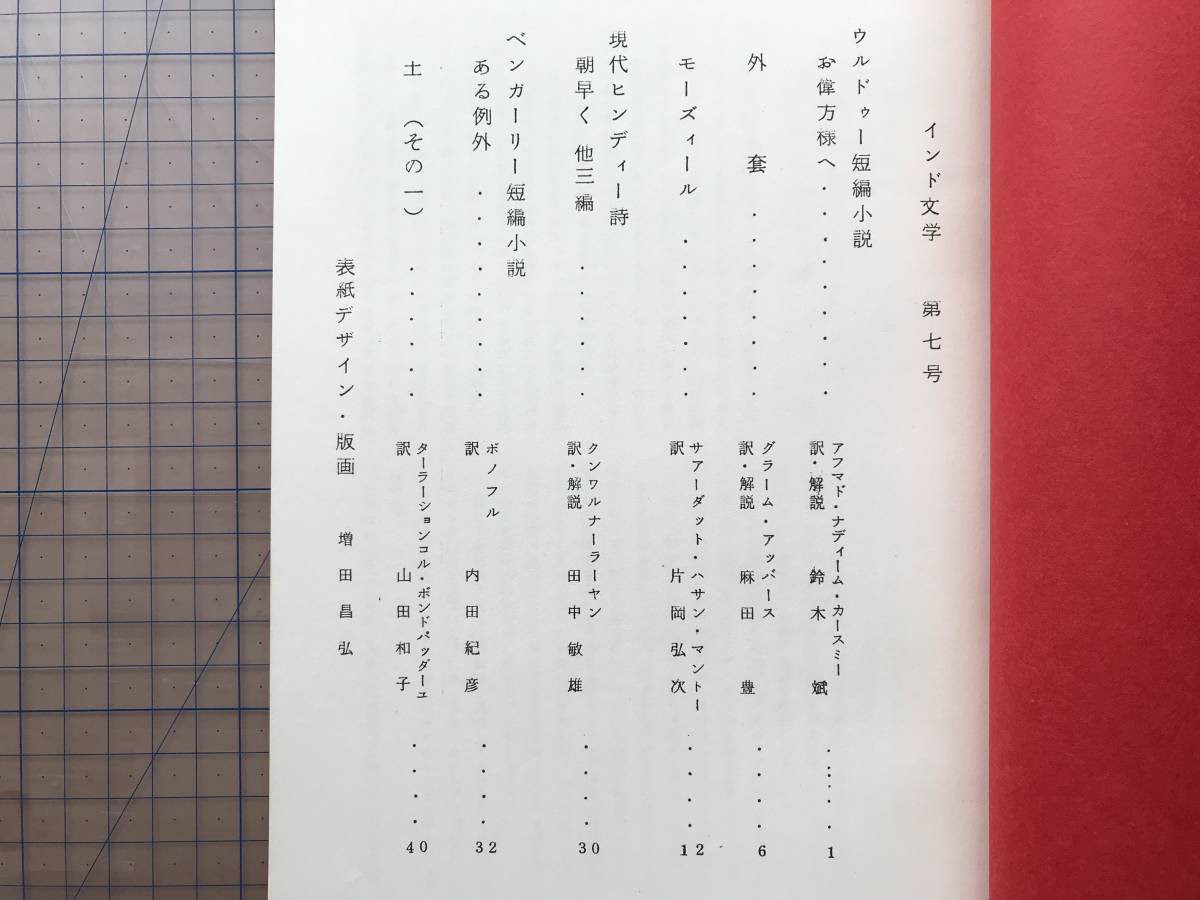 インド文学 第七号
ウルドゥー短編小説
お偉方様へ・・・・・・・・・
アフマド・ナディーム・カースミー
訳・解説 鈴木 斌 ・・・・・・ 1
外 套 ・・・・・・・・
グラーム・アッバース
訳・解説 麻田 豊 ・・・・ 6
モーズィール ・・・・・・・
サアーダット・ハサン・マントー
訳 片岡弘次 ・・・・ 12
現代ヒンディー詩
朝早く 他三編 ・・・・・・
クンワルナーラーヤン
訳・解説 田中敏雄 ・・・・ 30
ベンガーリー短編小説
ある例外 ・・・・・・・・・
ボノフル
訳 内田紀彦 ・・・・ 32
土 (その一) ・・・・・・
ターラーションコル・ボンドパッダーエ
訳 山田和子 ・・・・ 40
表紙デザイン・版画 増田昌弘